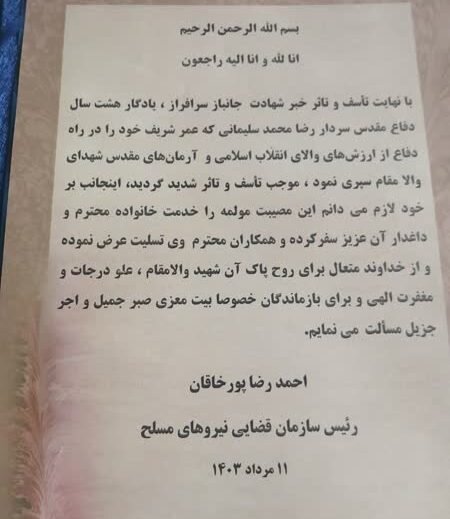 بسم الله الرحمن الرحیم
انا لله و انا الیه راجعون
با نهایت تأسف و تاثر خبر شهادت جانباز سرافراز ، یادگار هشت سال
دفاع مقدس سردار رضا محمد سلیمانی که عمر شریف خود را در راه
دفاع از ارزش‌های والای انقلاب اسلامی و آرمان‌های مقدس شهدای
والا مقام سپری نمود ، موجب تأسف و تاثر شدید گردید، اینجانب بر
خود لازم می دانم این مصیبت مولمه را خدمت خانواده محترم و
داغدار آن عزیز سفرکرده و همکاران محترم وی تسلیت عرض نموده
و از خداوند متعال برای روح پاک آن شهید والامقام ، علو درجات و
مغفرت الهی و برای بازماندگان خصوصا بیت معزی صبر جمیل و اجر
جزیل مسألت می نمایم.
احمد رضا پورخاقان
رئیس سازمان قضایی نیروهای مسلح
۱۱ مرداد ۱۴۰۳